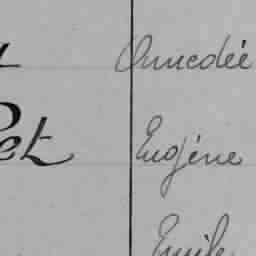 Amedée
et Eugène
Emile